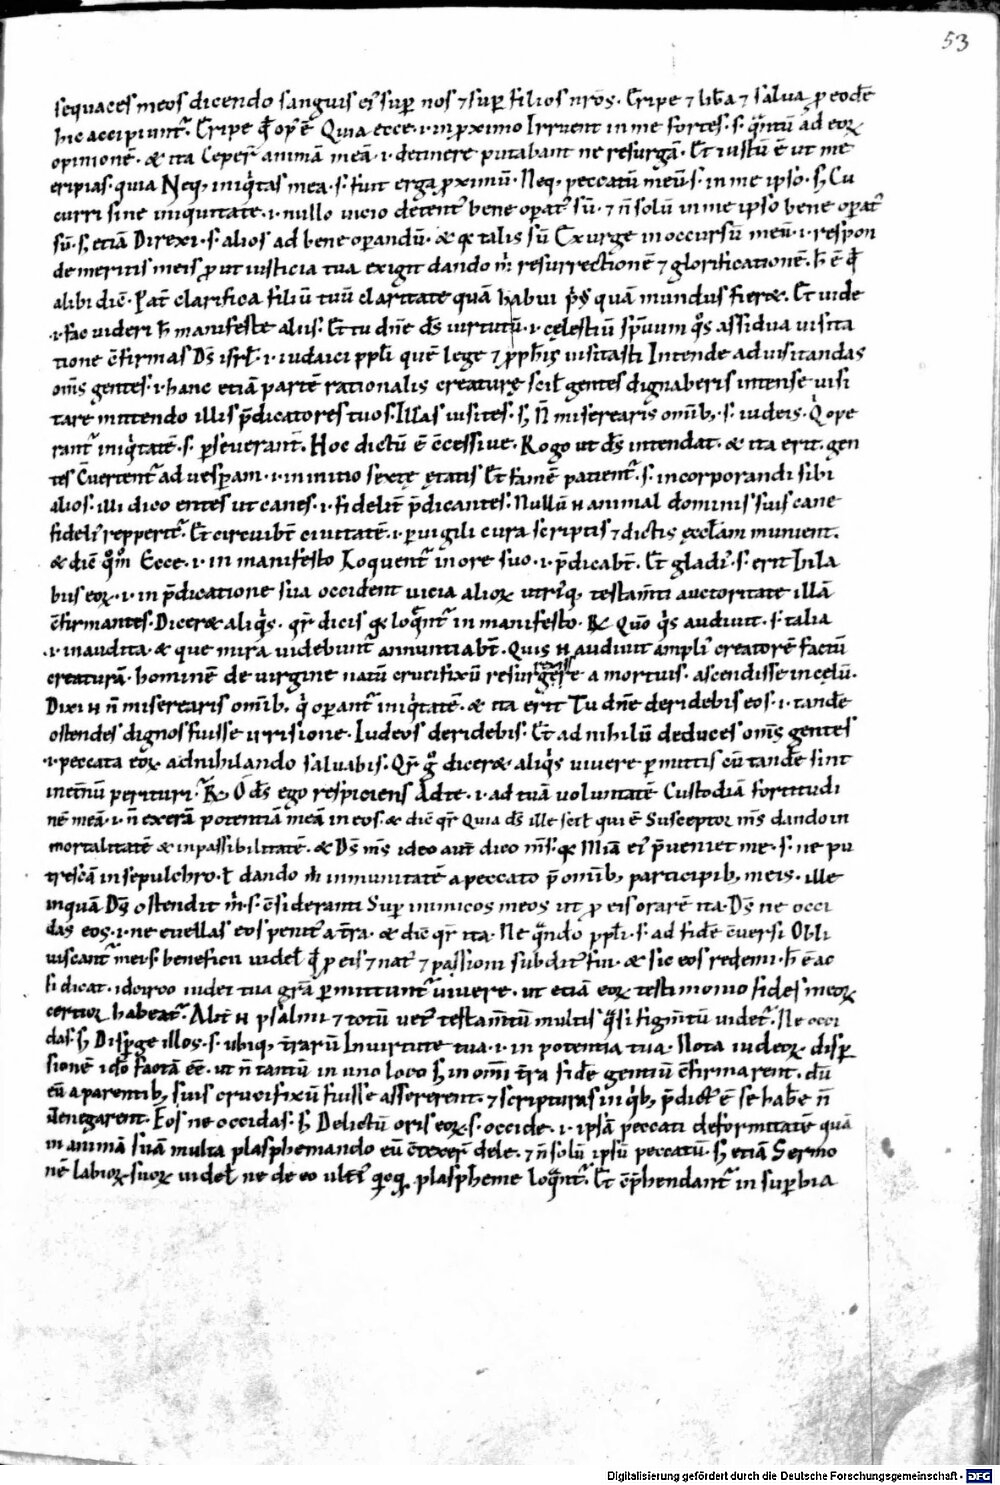 53
sequaces meos dicendo sanguis ei᾽ sup̄ nos ⁊ sup̄ filios nr̄os. Eripe ⁊ lib̄a ⁊ salva ꝓ eodē
hic accipiunt᾽. Eripe qd̄ op᾽ ē Quia ecce .i. in ꝓximo Irruent in me fortes .s. q̄ntū ad eoꝝ
opinionē. & ita Ceper̄ animā meā .i. detinere putabant ne resurgā. Et iustū ē ut me
eripias. quia Neq, iniq̇tas mea .s. fuit erga ꝓximū. Neq, peccatū meū .s. in me ipso. sꝫ Cu
curri sine iniquitate .i. nullo vicio detent᾽ bene oꝑat᾽ sū. ⁊ n̄ solū in me ipso bene oꝑat᾽
sū. sꝫ etiā Direxi .s. alios ad bene oꝑandū. & qꝛ talis sū Exurge in occursū meū .i. respon
de meritis meis ꝓut iusticia tua exigit dando m̄ resurrectionē ⁊ glorificationē. h̄ ē qd̄
alibi dic̄. Pat̄ clarifica filiū tuū claritate quā habui p̄᾽quā mundus fier&. Et vide
.i. fac videri h̄ manifeste aliis. Et tu dn̄e ds̄ virtutū .i. celestiū sp̄uum q᷒s assidua visita
tione c̄firmas Ds̄ isrl̄ .i. iudaici ppl̄i quē lege ⁊ ꝓph̄is visitasti Intende ad visitandas
om̄s gentes .i. hanc etiā partē rationalis creaturę scil̄ gentes dignaberis intense visi
tare mittendo illis p̄dicatores tuos. Illas visites. sꝫ N̄ miserearis omīb, .s. iudeis. Q̇ ope
rant᾽ iniq̇tatē .s. ꝑseverant. Hoc dictū ē c̄cessive. Rogo ut ds̄ intendat. & ita erit. gen
tes C̄vertent᾽ ad vesꝑam .i. in initio sextę ętatis Et famē patient᾽ .s. incorporandi sibi
alios. illi dico entes ut canes .i. fidelit̄ p̄dicantes. Nullū n animal dominis suis cane
fideli᾽ repperit᾽. Et circuibt̄ civitatē .i. ꝑvigili cura scriptis ⁊ dictis eccl̄am munient.
& dic̄ q᷒m Ecce .i. in manifesto Loquent᾽ in ore suo .i. p̄dicabt̄. Et gladi᾽ .s. erit In la
biis eoꝝ .i. in p̄dicatione sua occident vicia alioꝝ utri᾽q, testam̄ti auctoritate illā
c̄firmantes. Dicer& aliq̇s. qr̄ dicis qꝛ loq̄nt᾽ in manifesto. R̷ Quō q̇s audivit .s. talia
.i. inaudita. & que mira videbunt᾽ annuntiabt̄. Quis n audivit ampli᾽ creatorē factū
creaturā. hominē de virgine natū crucifixū resurgere a mortuis. ascendisse in celū.
Dixi n n̄ miserearis omīb, q̇ oꝑant᾽ iniq̇tatē. & ita erit Tu dn̄e deridebis eos .i. tandē
ostendes dignos fuisse irrisione. Iudeos deridebis. Et ad nihilū deduces om̄s gentes
.i. peccata eoꝝ adnihilando salvabis. Qr̄ g᷒ dicer& aliq̇s vivere ꝑmittis eū tandē sint
inet̄nū perituri. R̷ O ds̄ ego respiciens Ad te .i. ad tuā voluntatē Custodiā fortitudi
nē meā .i. n̄ exerā potentiā meā in eos. & dic̄ qr̄ Quia ds̄ ille scil̄ qui ē Susceptor m̄s dando in
mortalitatē & inpassibilitatē. & Ds̄ m̄s ideo aut̄ dico m̄s. qꝛ Mīa ei᾽ p̄veniet me .s. ne pu
trescā in sepulchro. ł dando m̄ inmunitatē a peccato p̄ omīb, participib, meis. ille
inquā Ds̄ ostendit m̄ .s. c̄sideranti Sup̄ inimicos meos ut ꝓ eis orarē ita. Ds̄ ne occi
das eos .i. ne evellas eos penit᾽ a t̄ra. & dic̄ qr̄ ita. Ne q̄ndo ppl̄i .s. ad fidē c̄versi Obli
viscant᾽ mei .s. beneficii videl̄ qd̄ ꝓ eis ⁊ nat᾽ ⁊ passioni subdit᾽ fui. & sic eos redemi. h̄ ē ac
si dicat. idcirco iudei tua gr̄a ꝑmittunt᾽ vivere. ut etiā eoꝝ testimonio fides meoꝝ
certior habeat᾽. Alit̄ n psalmi ⁊ totū vet᾽ testam̄tū multis q̄si figm̄tū videt᾽. Ne occi
das. sꝫ Disꝑge illos .s. ubiq, t̄rarū In virtute tua .i. in potentia tua. Nota iudeoꝝ disꝑ
sionē idō factā eē. ut n̄ tantū in uno loco sꝫ in omī t̄ra fidē gentiū c̄firmarent. dū
eū a parentib, suis crucifixū fuisse assererent. ⁊ scripturas in q̇b, p̄dict᾽ ē se habē n̄
denegarent. Eos ne occidas. sꝫ Delictū oris eoꝝ .s. occide .i. ipsā peccati deformitatē quā
in animā suā multa plasphemando eū c̄texer̄ dele. ⁊ n̄ solū ipsū peccatū. sꝫ etiā Sermo
nē labioꝝ suoꝝ videl̄ ne de eo ult᾽i᾽ qicq plaspheme loq̄nt᾽. Et c̄p̄hendant᾽ in suꝑbia
Digitalisierung gefördert durch die Deutsche Forschungsgemeinschaft - DFG